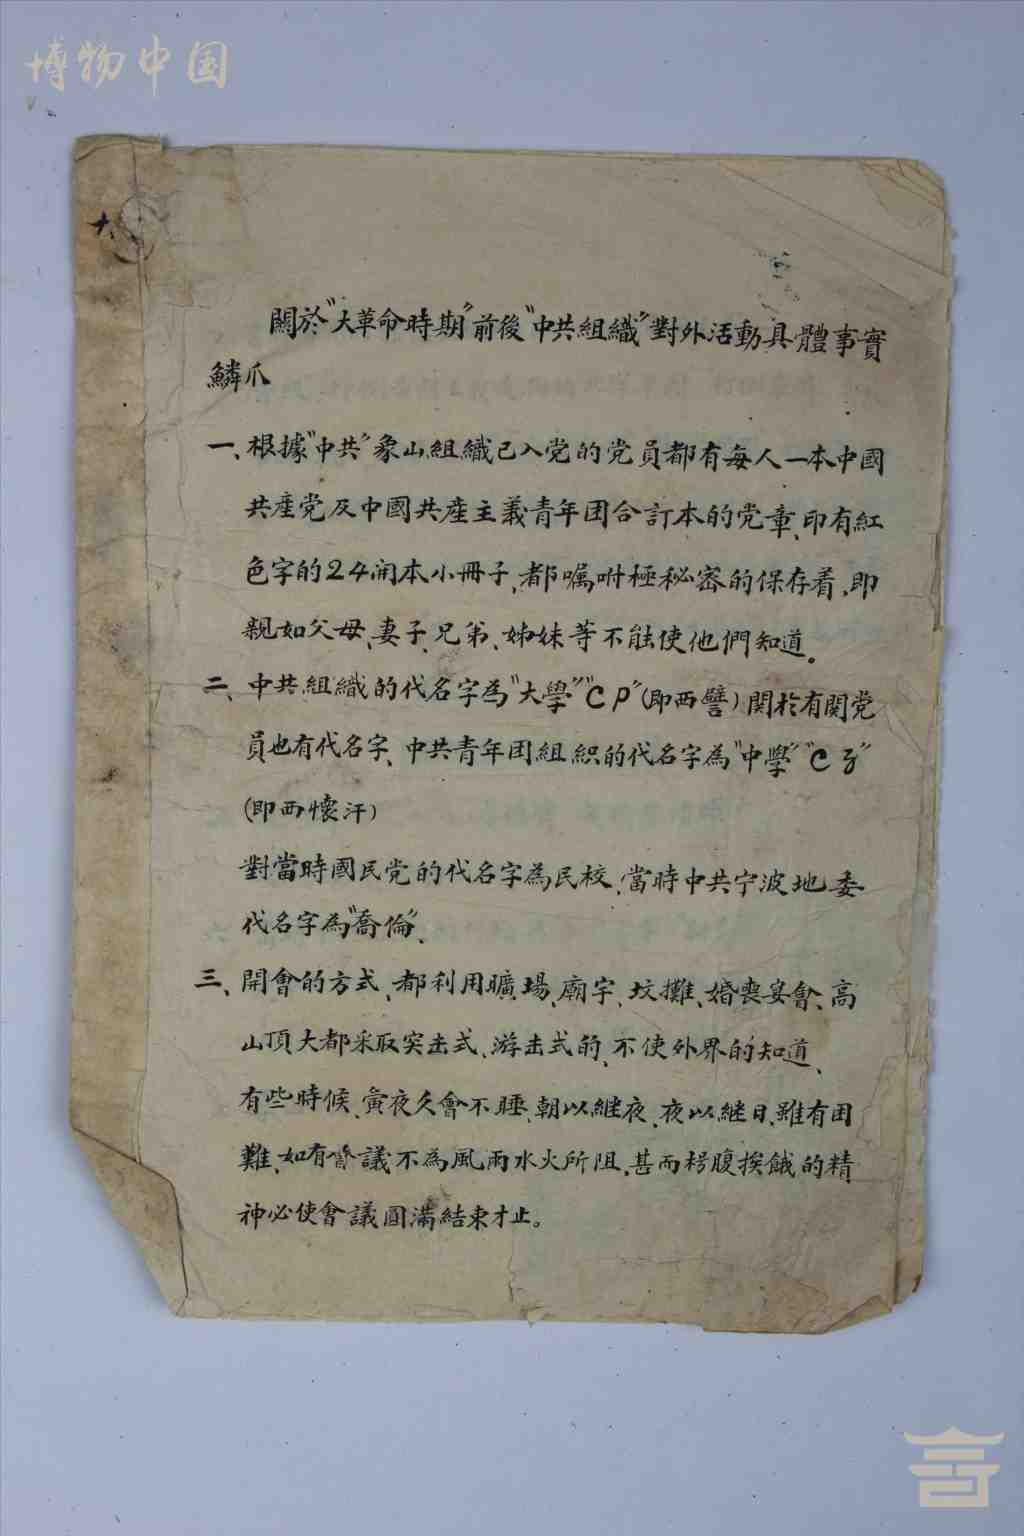 博物中国
十、
關於"大革命時期"前後"中共組織"對外活動具體事實
鱗爪
一、根據"中共"象山組織已入党的党員都有每人一本中國
共產党及中國共產主義青年团合訂本的党章、印有紅
色字的24開本小冊子、都嘱咐極秘密的保存着、即
親如父母、妻子、兄弟、姊妹等不能使他們知道。
二、中共組織的代名字為"大學""CP"(即西譬)関於有関党
員也有代名字、中共青年团組織的代名字為"中學""C
(即西懷汗)
對當時國民党的代名字為民校、當時中共宁波地委
代名字為"喬倫"、
三、開會的方式、都利用曠場、廟宇、坟攤、婚喪宴會、高
山頂大都采取突击式、游击式的、不使外界的知道、
有些時候、寅夜久會不睡、朝以継夜、夜以継日、雖有困
難、如有會議不為風雨水火所阻、甚而枵腹挨餓的精
神必使會議圓滿結束才止。